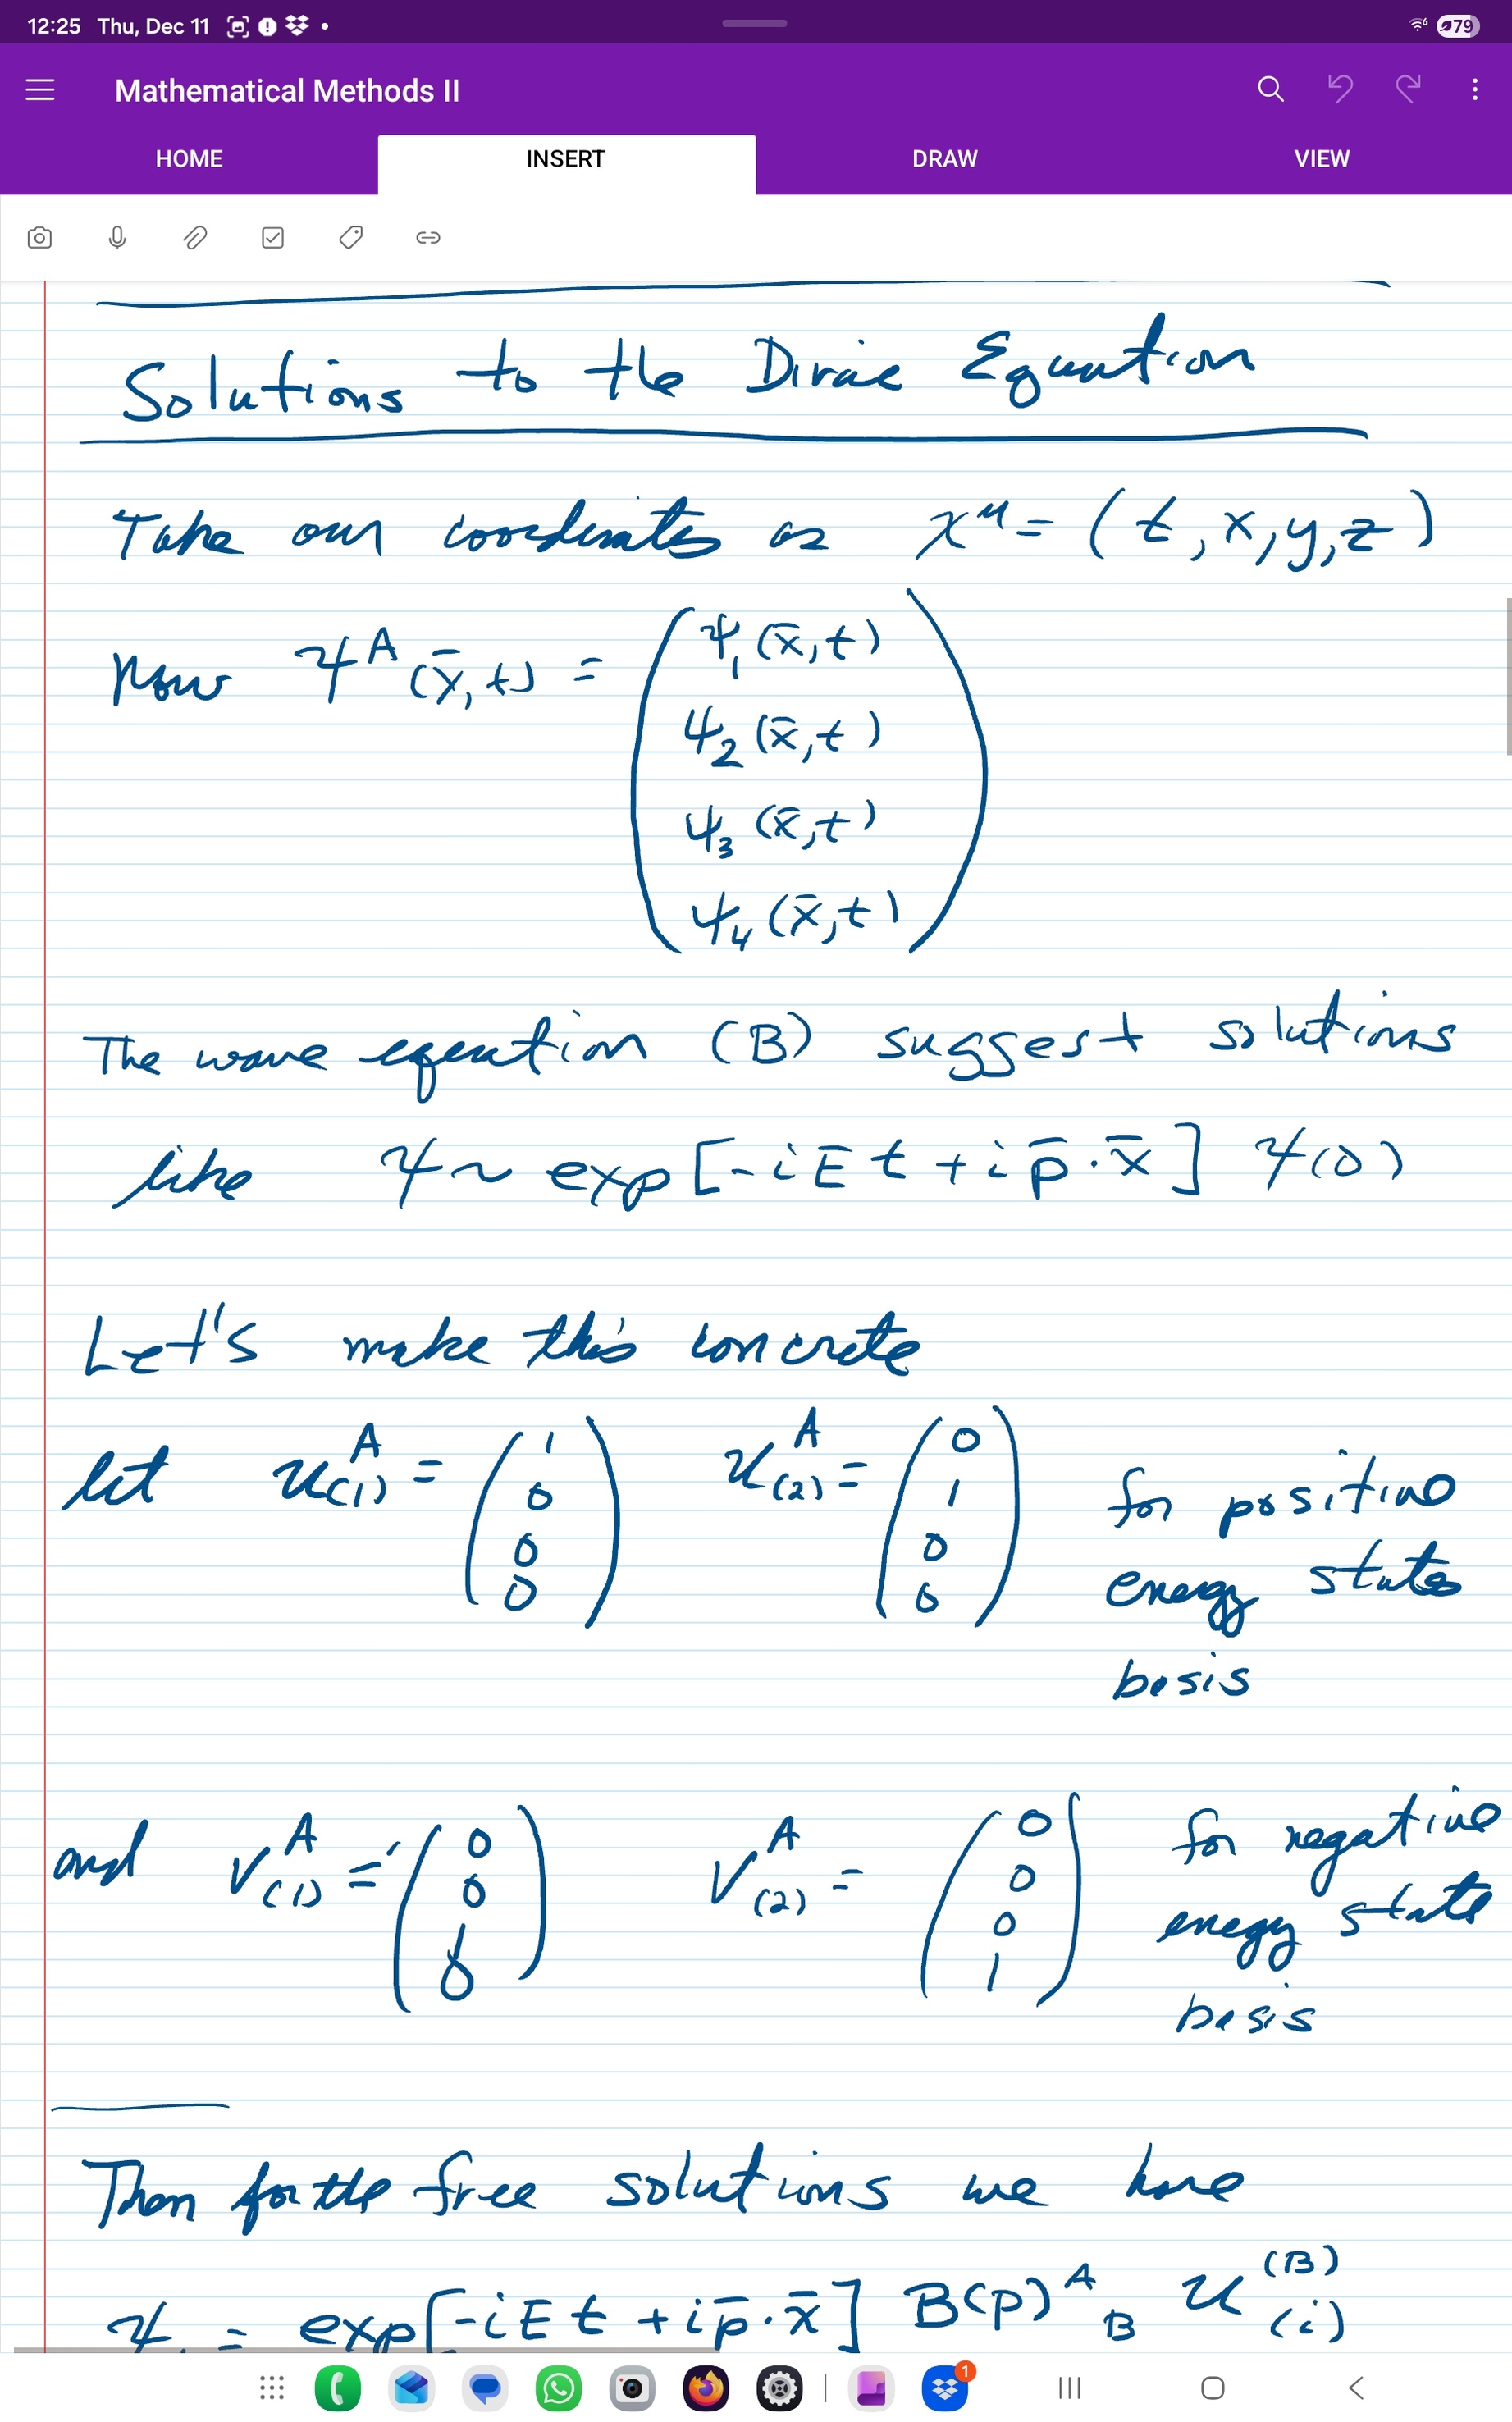 12:25 Thu, Dec 11
79
Mathematical Methods II
HOME INSERT DRAW VIEW
Solutions to the Dirac Equation
Take our coordinates as x^μ = (t, x, y, z)
Now ψ^A(x̄, t) = (ψ₁(x̄, t)
ψ₂(x̄, t)
ψ₃(x̄, t)
ψ₄(x̄, t))
The wave equation (B) suggest solutions
like ψ ~ exp[-iEt + i p̄·x̄] ψ(0)
Let's make this concrete
let u^A_(1) = (1 0 0 0) u^A_(2) = (0 1 0 0) for positive
energy states
basis
and v^A_(1) = (0 0 1 0) v^A_(2) = (0 0 0 1) for negative
enegy state
basis
Then for the free solutions we have
ψ = exp[-iEt + i p̄·x̄] B(p)^A_B u^(B)_(i)
1